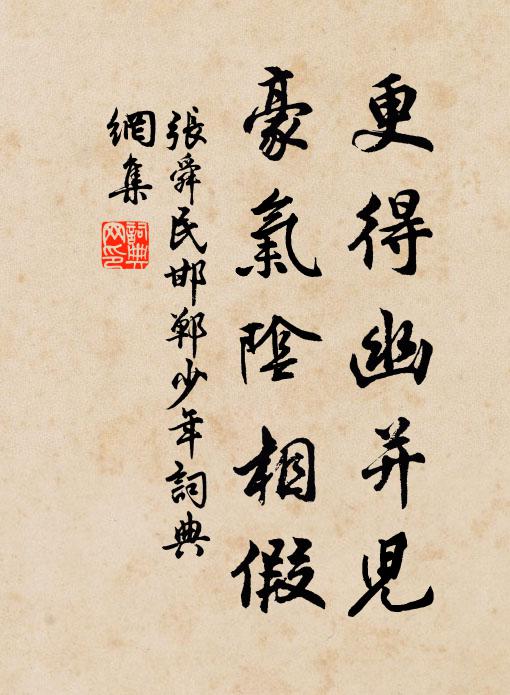 更得幽并児
豪氣陰相假
張舜民邯鄲少年詞典
網集
詞典
网印